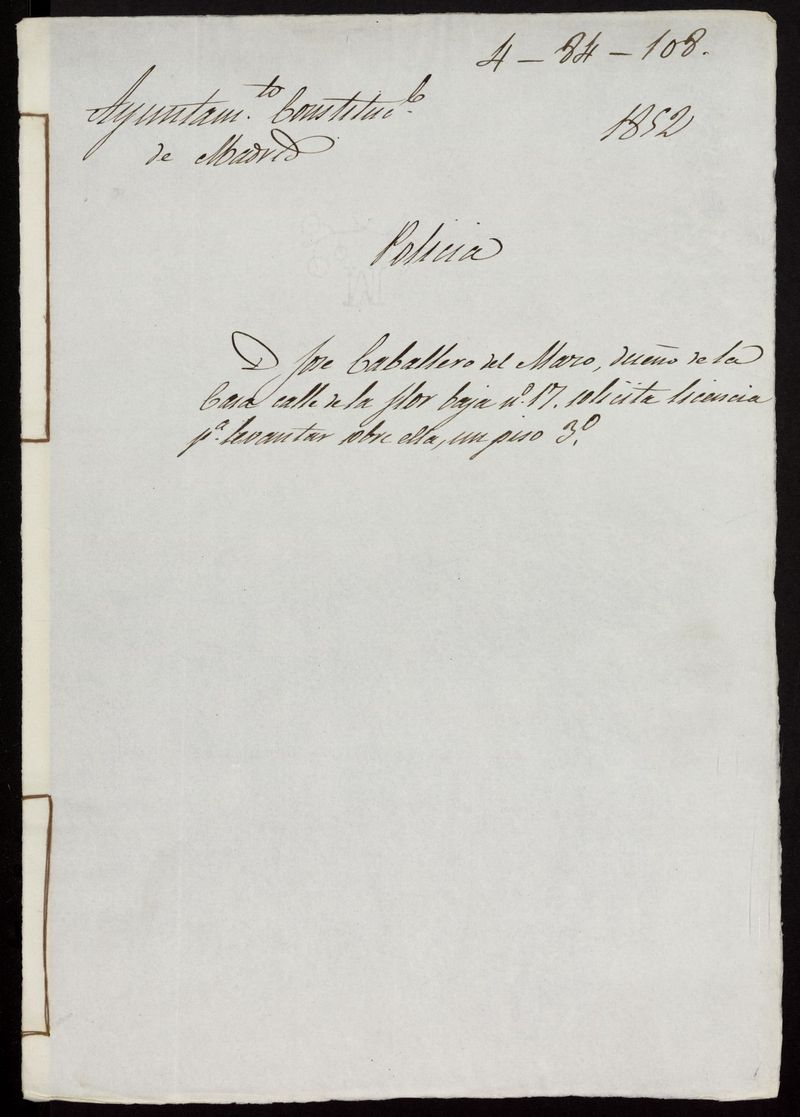 4 - 84 - 108.
Ayuntam.to Constituc.l
1852
de Madrid
Policia
D Jose Caballero del Mazo, dueño de la
Casa calle de la flor baja n.o 17. solicita licencia
p.a levantar sobre ella, un piso 3.o